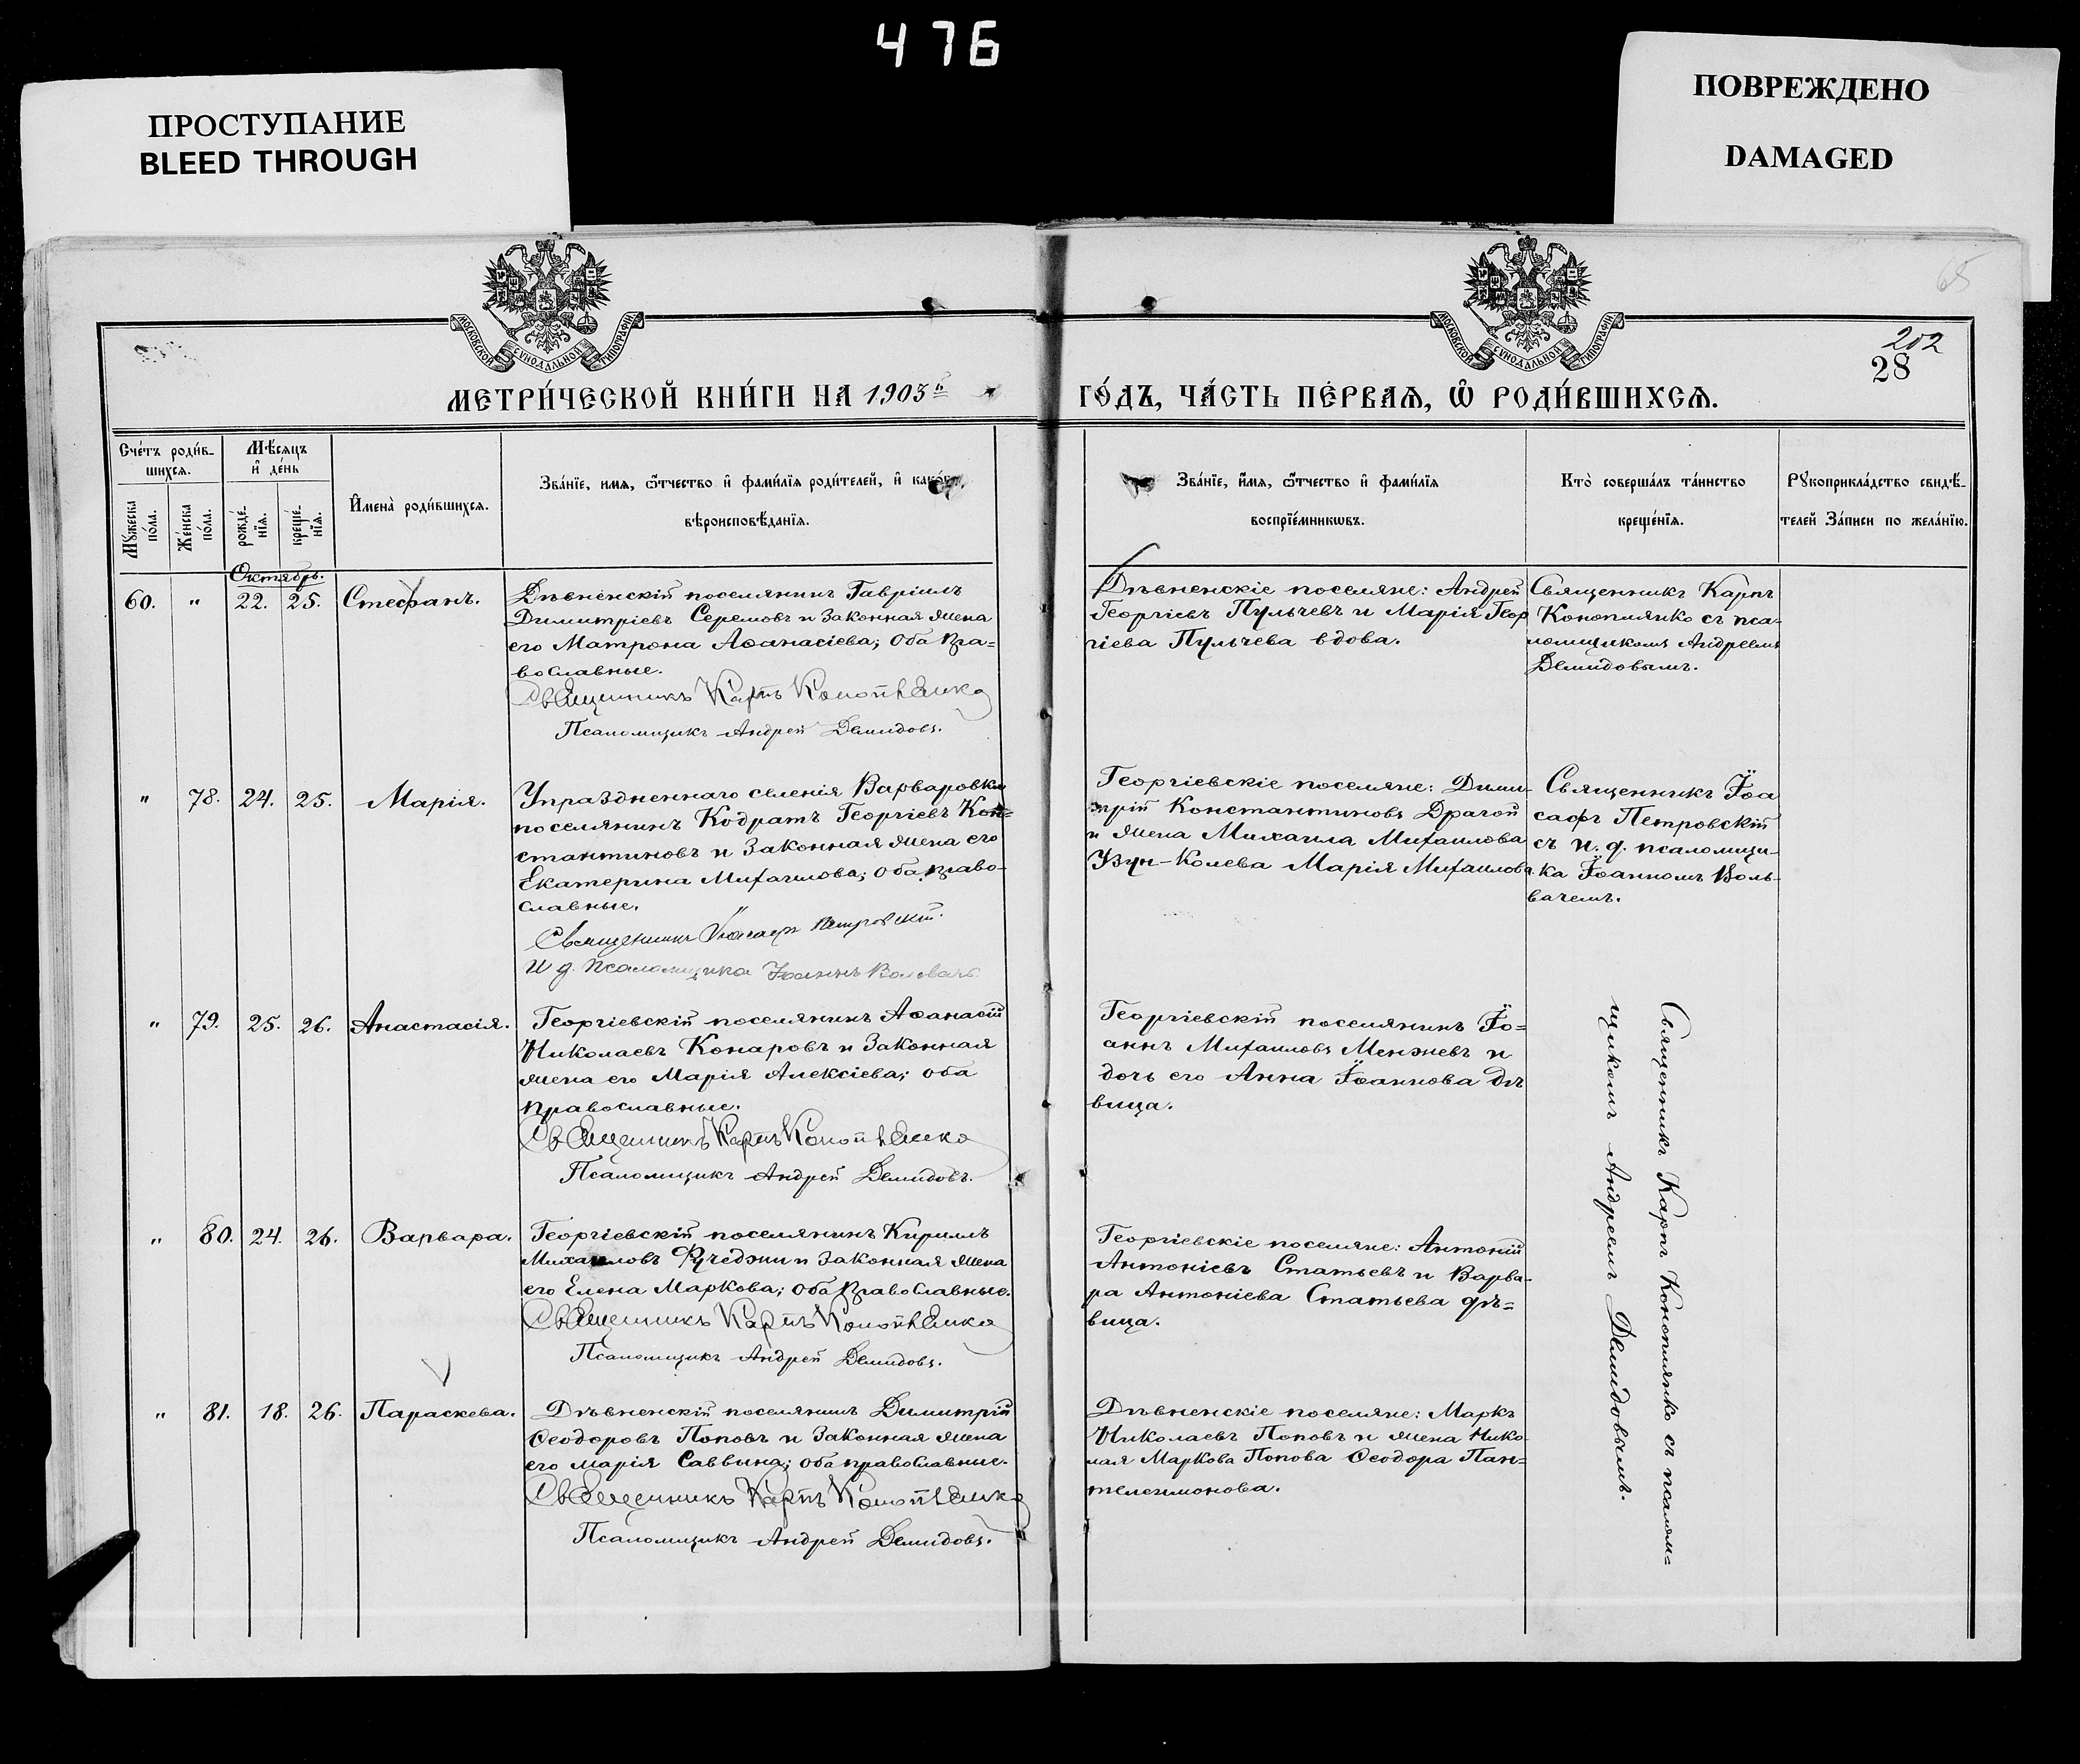 476
ПРОСТУПАНИЕ
BLEED THROUGH
ПОВРЕЖДЕНО
DAMAGED
65
202
28
МОСКОВСКОЙ СѴНОДАЛЬНОЙ ТИПОГРАФІИ
МОСКОВСКОЙ СѴНОДАЛЬНОЙ ТИПОГРАФІИ
МЕТРИ́ЧЕСКОЙ КНИ́ГИ НА 1903й ГО́ДЪ, ЧА́СТЬ ПЕ́РВАѦ, Ѡ҆ РОДИ́ВШИХСѦ.
Сче́тъ роди́в-
шихсѧ.
Мѣ́сѧцъ
и҆ де́нь
Мꙋ́жеска
по́ла.
Же́нска
по́ла.
рожде́-
нїѧ.
креще́-
нїѧ.
И҆мена̀ роди́вшихсѧ.
Зва́нїе, имѧ, ѻ҆́тчество и҆ фами́лїѧ роди́телей, и҆ како́гѡ
вѣроисповѣ́данїѧ.
Зва́нїе, и҆́мѧ, ѻ҆́тчество и҆ фами́лїѧ
воспрїе́мникѡвъ.
Кто̀ соверша́лъ та́инство
креще́нїѧ.
Рꙋкоприкла́дство свидѣ́-
телей За́писи по жела́нїю.
Октябрь.
60. " 22. 25. Стефанъ.
Дѣвненскій поселянинъ Гавріилъ
Димитріевъ Серемовъ и Законная жена
его Матрона Аѳанасіева; Оба Пра=
вославные.
Священникъ Карпъ Коноплянко
Псаломщикъ Андрей Демидовъ.
Дѣвненскіе поселяне: Андрей
Георгіевъ Пульчевъ и Марія Геор
гіева Пульчева вдова.
Священникъ Карпъ
Коноплянко съ пса-
ломщикомъ Андреемъ
Демидовымъ.
" 78. 24. 25. Марія.
Упраздненнаго селенія Варваровки
поселянинъ Кодратъ Георгіевъ Кон=
стантиновъ и Законная жена его
Екатерина Михаилова; Оба Право-
славные.
Священникъ Іоасафъ Петровскій.
И д. псаломщика Іоаннъ Воловачъ
Георгіевскіе поселяне: Дими-
трій Константиновъ Драгой
и жена Михаила Михаилова
Узун-Колева Марія Михаилова.
Священникъ Іоа
сафъ Петровскій
съ и. д. псаломщи-
ка Іоанномъ Воль-
вачемъ.
" 79. 25. 26. Анастасія.
Георгіевскій поселянинъ Аѳанасій
Николаевъ Конаровъ и Законная
жена его Марія Алексіева; оба
православные.
Священникъ Карпъ Коноплянко
Псаломщикъ Андрей Демидовъ.
Георгіевскій поселянинъ Іо=
аннъ Михаиловъ Менжевъ и
дочь его Анна Іоаннова дѣ
вица.
Священникъ Карпъ Коноплянко съ псалом=
щикомъ Андреемъ Демидовымъ.
" 80. 24. 26. Варвара.
Георгіевскій поселянинъ Кириллъ
Михаиловъ Фучеджи и Законная жена
его Елена Маркова; Оба Православные.
Священникъ Карпъ Коноплянко
Псаломщикъ Андрей Демидовъ.
Георгіевскіе поселяне: Антоній
Антоніевъ Статьевъ и Варва-
ра Антоніева Статьева дѣ=
вица.
" 81. 18. 26. Параскева.
Дѣвненскій поселянинъ Димитрій
Ѳеодоровъ Поповъ и Законная жена
его Марія Саввина; оба православные.
Священникъ Карпъ Коноплянко
Псаломщикъ Андрей Демидовъ.
Дѣвненскіе поселяне: Маркъ
Николаевъ Поповъ и жена Нико-
лая Маркова Попова Ѳеодора Пан=
телеимонова.